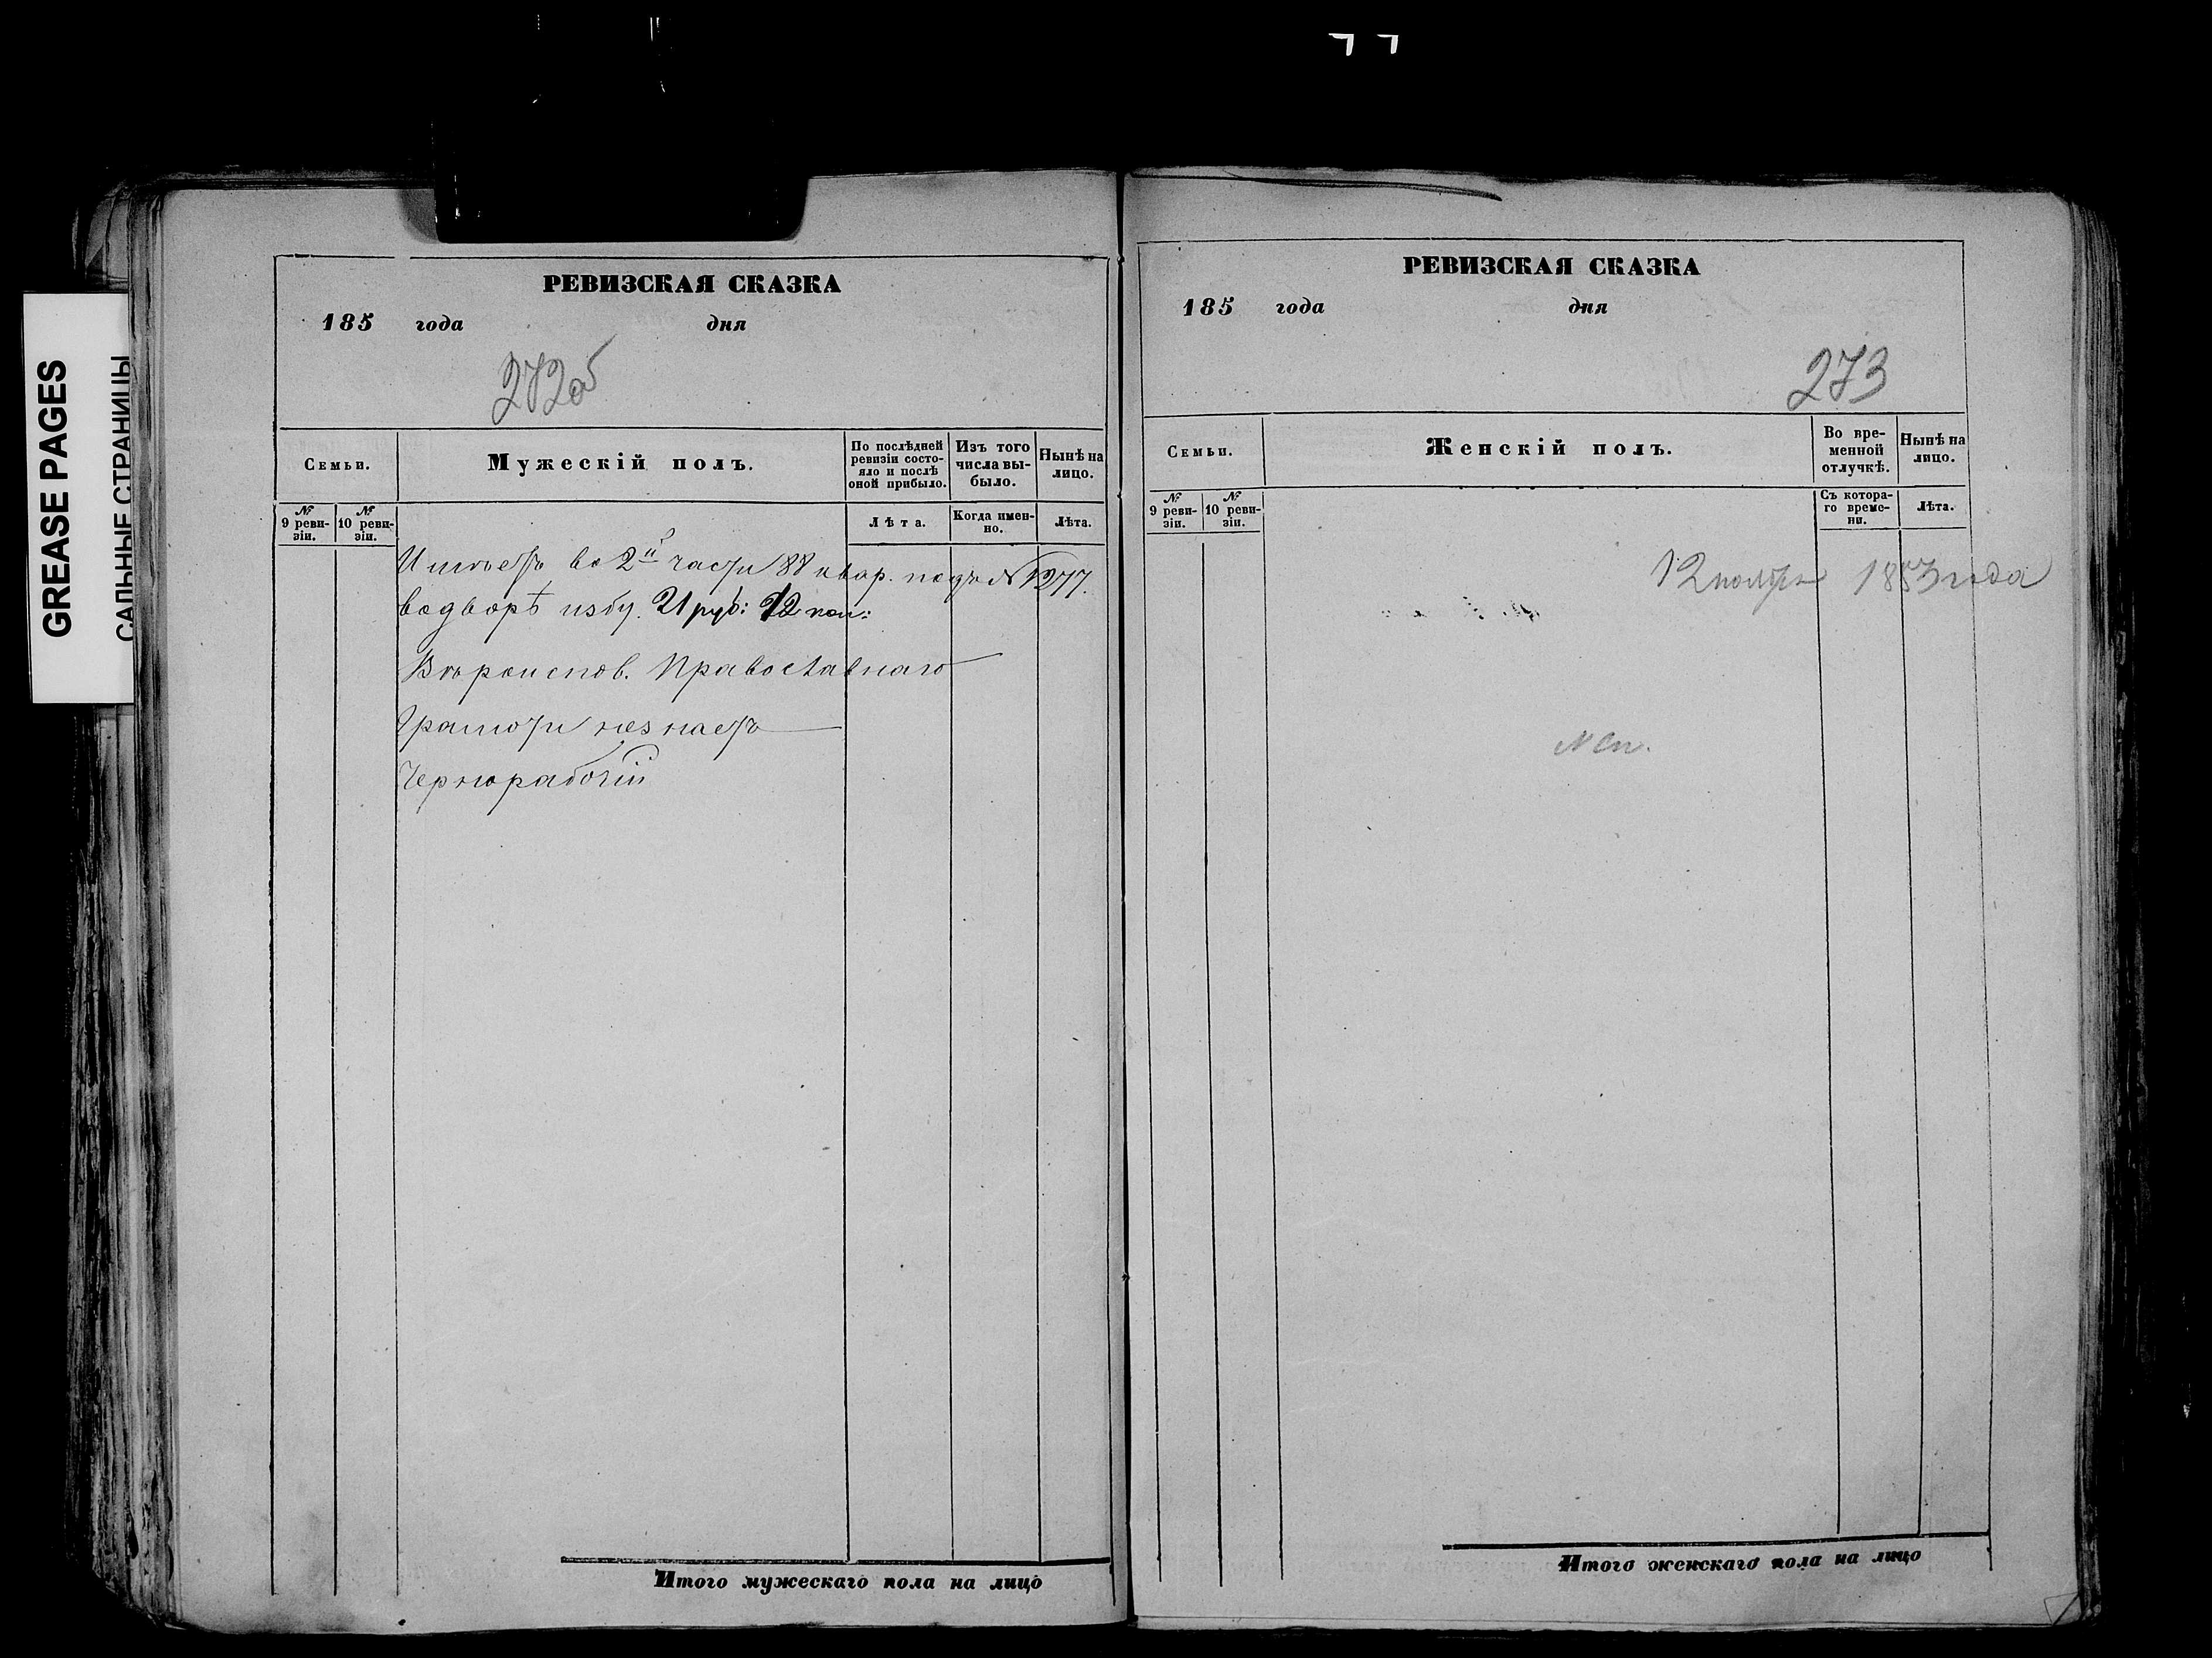 GREASE PAGES
САЛЬНЫЕ СТРАНИЦЫ
РЕВИЗСКАЯ СКАЗКА
185 года дня
272об
Семьи.
Мужескій полъ.
По послѣдней ревизіи состояло и послѣ оной прибыло.
Изъ того числа выбыло.
Нынѣ на лицо.
№ 9 ревизіи.
№ 10 ревизіи.
Лѣта.
Когда именно.
Лѣта.
Имѣетъ во 2й части 88 квар. подъ № 1277.
водворѣ избу. 21 руб: 12 коп:
Вѣроиспов. Православнаго
Грамоти незнаетъ
Чернорабочій
Итого мужескаго пола на лицо
РЕВИЗСКАЯ СКАЗКА
185 года дня
273
Семьи.
Женскій полъ.
Во временной отлучкѣ.
Нынѣ на лицо.
№ 9 ревизіи.
№ 10 ревизіи.
Съ котораго времени.
Лѣта.
12 ноября 1853 года
Итого женскаго пола на лицо